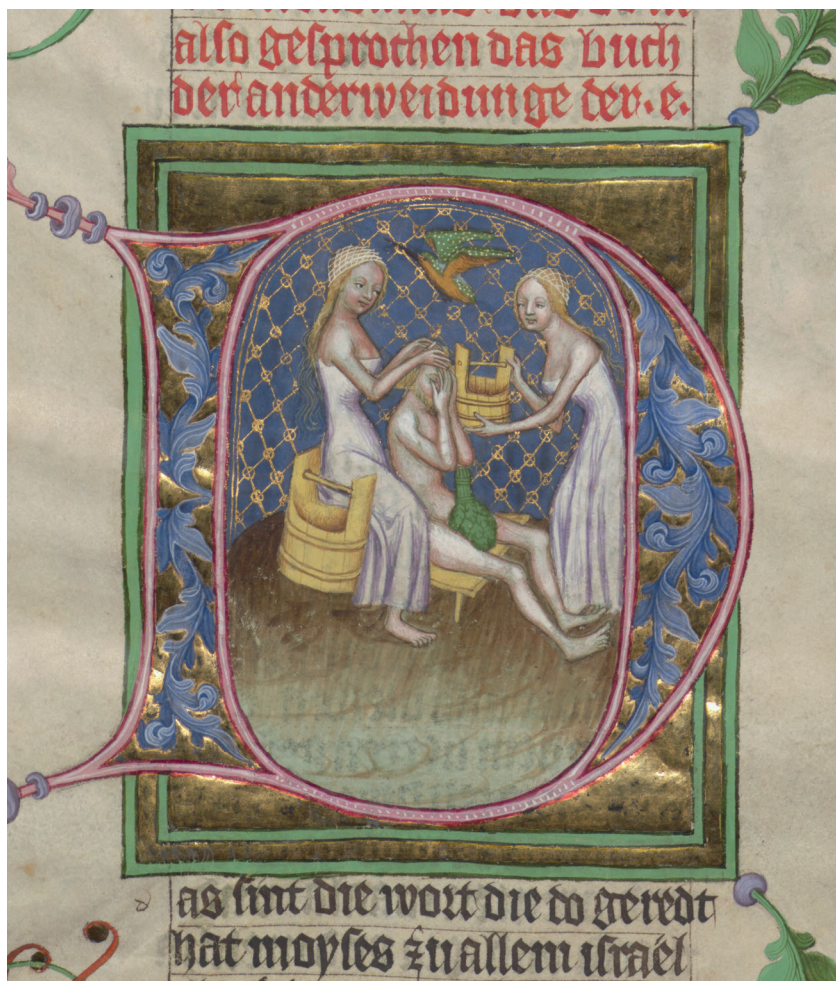 also gesprochen das buch
der anderweidunge der · e ·
D
as sint die wort die do geredt
hat moyses zu allem israel